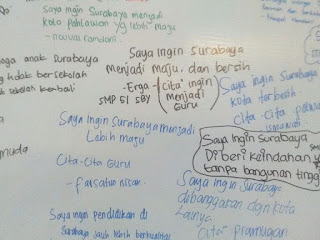 Saya ingin Surabaya menjadi
kota Pahlawan yg lebih maju
- nauval ramdani
Saya ingin Surabaya
menjadi maju, dan bersih
-Erga- Cita" ingin
SMP 51 SBY menjadi
Guru
anak Surabaya
tidak bersekolah
sekolah kembali
Saya ingin Surabaya menjadi
Lebih maju
Cita-Cita Guru
- faisatun nisan
Saya ingin Surabaya
kota terbersih
Cita-Cita
Saya ingin Surabaya
Di beri keindahan
tanpa bangunan tinggi
Saya ingin Surabaya
dibanggakan dgn kota
Lainya
Cita" pramugari
Saya ingin pendidikan di
Surabaya jauh lebih berkualitas